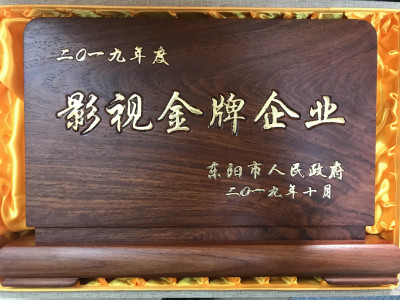 二〇一九年度
影视金牌企业
东阳市人民政府
二〇一九年十月